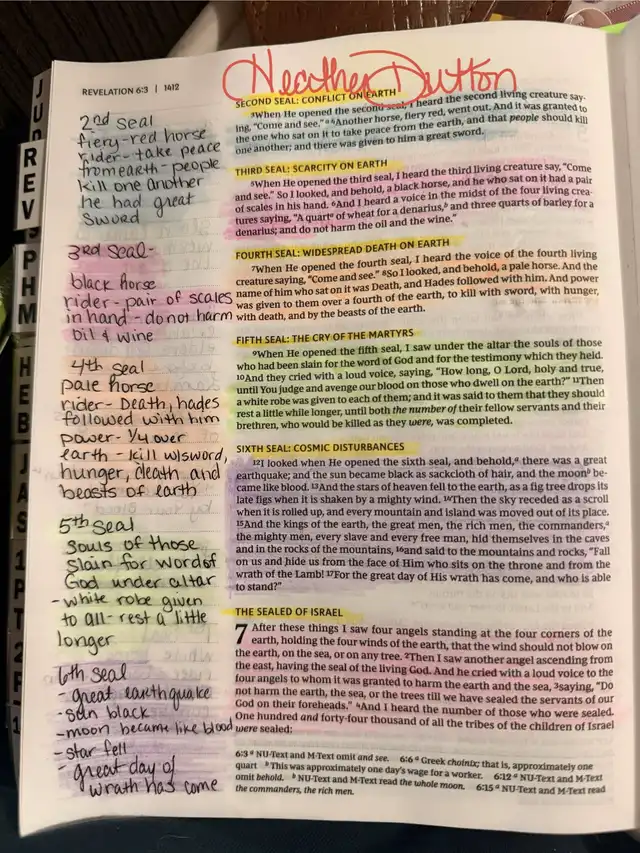 Heather Dutton
REVELATION 6:3 | 1412
2nd seal
fiery-red horse
rider- take peace
from earth-people
kill one another
he had great
sword
3rd seal-
black horse
rider- pair of scales
in hand - do not harm
oil & wine
4th seal
pale horse
rider- Death, hades
followed with him
power- 1/4 over
earth - kill w/sword,
hunger, death and
beasts of earth
5th seal
souls of those
slain for word of
God under altar
- white robe given
to all- rest a little
longer
6th seal
- great earthquake
- sun black
- moon became like blood
- star fell
- great day of
wrath has come
SECOND SEAL: CONFLICT ON EARTH
3When He opened the second seal, I heard the second living creature say-
ing, "Come and see." a 4Another horse, fiery red, went out. And it was granted to
the one who sat on it to take peace from the earth, and that people should kill
one another; and there was given to him a great sword.
THIRD SEAL: SCARCITY ON EARTH
5When He opened the third seal, I heard the third living creature say, "Come
and see." So I looked, and behold, a black horse, and he who sat on it had a pair
of scales in his hand. 6And I heard a voice in the midst of the four living crea-
tures saying, "A quarta of wheat for a denarius,b and three quarts of barley for a
denarius; and do not harm the oil and the wine."
FOURTH SEAL: WIDESPREAD DEATH ON EARTH
7When He opened the fourth seal, I heard the voice of the fourth living
creature saying, "Come and see." 8So I looked, and behold, a pale horse. And the
name of him who sat on it was Death, and Hades followed with him. And power
was given to them over a fourth of the earth, to kill with sword, with hunger,
with death, and by the beasts of the earth.
FIFTH SEAL: THE CRY OF THE MARTYRS
9When He opened the fifth seal, I saw under the altar the souls of those
who had been slain for the word of God and for the testimony which they held.
10And they cried with a loud voice, saying, "How long, O Lord, holy and true,
until You judge and avenge our blood on those who dwell on the earth?" 11Then
a white robe was given to each of them; and it was said to them that they should
rest a little while longer, until both the number of their fellow servants and their
brethren, who would be killed as they were, was completed.
SIXTH SEAL: COSMIC DISTURBANCES
12I looked when He opened the sixth seal, and behold,a there was a great
earthquake; and the sun became black as sackcloth of hair, and the moonb be-
came like blood. 13And the stars of heaven fell to the earth, as a fig tree drops its
late figs when it is shaken by a mighty wind. 14Then the sky receded as a scroll
when it is rolled up, and every mountain and island was moved out of its place.
15And the kings of the earth, the great men, the rich men, the commanders,a
the mighty men, every slave and every free man, hid themselves in the caves
and in the rocks of the mountains, 16and said to the mountains and rocks, "Fall
on us and hide us from the face of Him who sits on the throne and from the
wrath of the Lamb! 17For the great day of His wrath has come, and who is able
to stand?"
THE SEALED OF ISRAEL
7 After these things I saw four angels standing at the four corners of the
earth, holding the four winds of the earth, that the wind should not blow on
the earth, on the sea, or on any tree. 2Then I saw another angel ascending from
the east, having the seal of the living God. And he cried with a loud voice to the
four angels to whom it was granted to harm the earth and the sea, 3saying, "Do
not harm the earth, the sea, or the trees till we have sealed the servants of our
God on their foreheads." 4And I heard the number of those who were sealed.
One hundred and forty-four thousand of all the tribes of the children of Israel
were sealed:
6:3 a NU-Text and M-Text omit and see. 6:6 a Greek choinix; that is, approximately one
quart b This was approximately one day's wage for a worker. 6:12 a NU-Text and M-Text
omit behold. b NU-Text and M-Text read the whole moon. 6:15 a NU-Text and M-Text read
the commanders, the rich men.
JUD
REV
PHM
HEB
JAS
1 PT
2 P
1